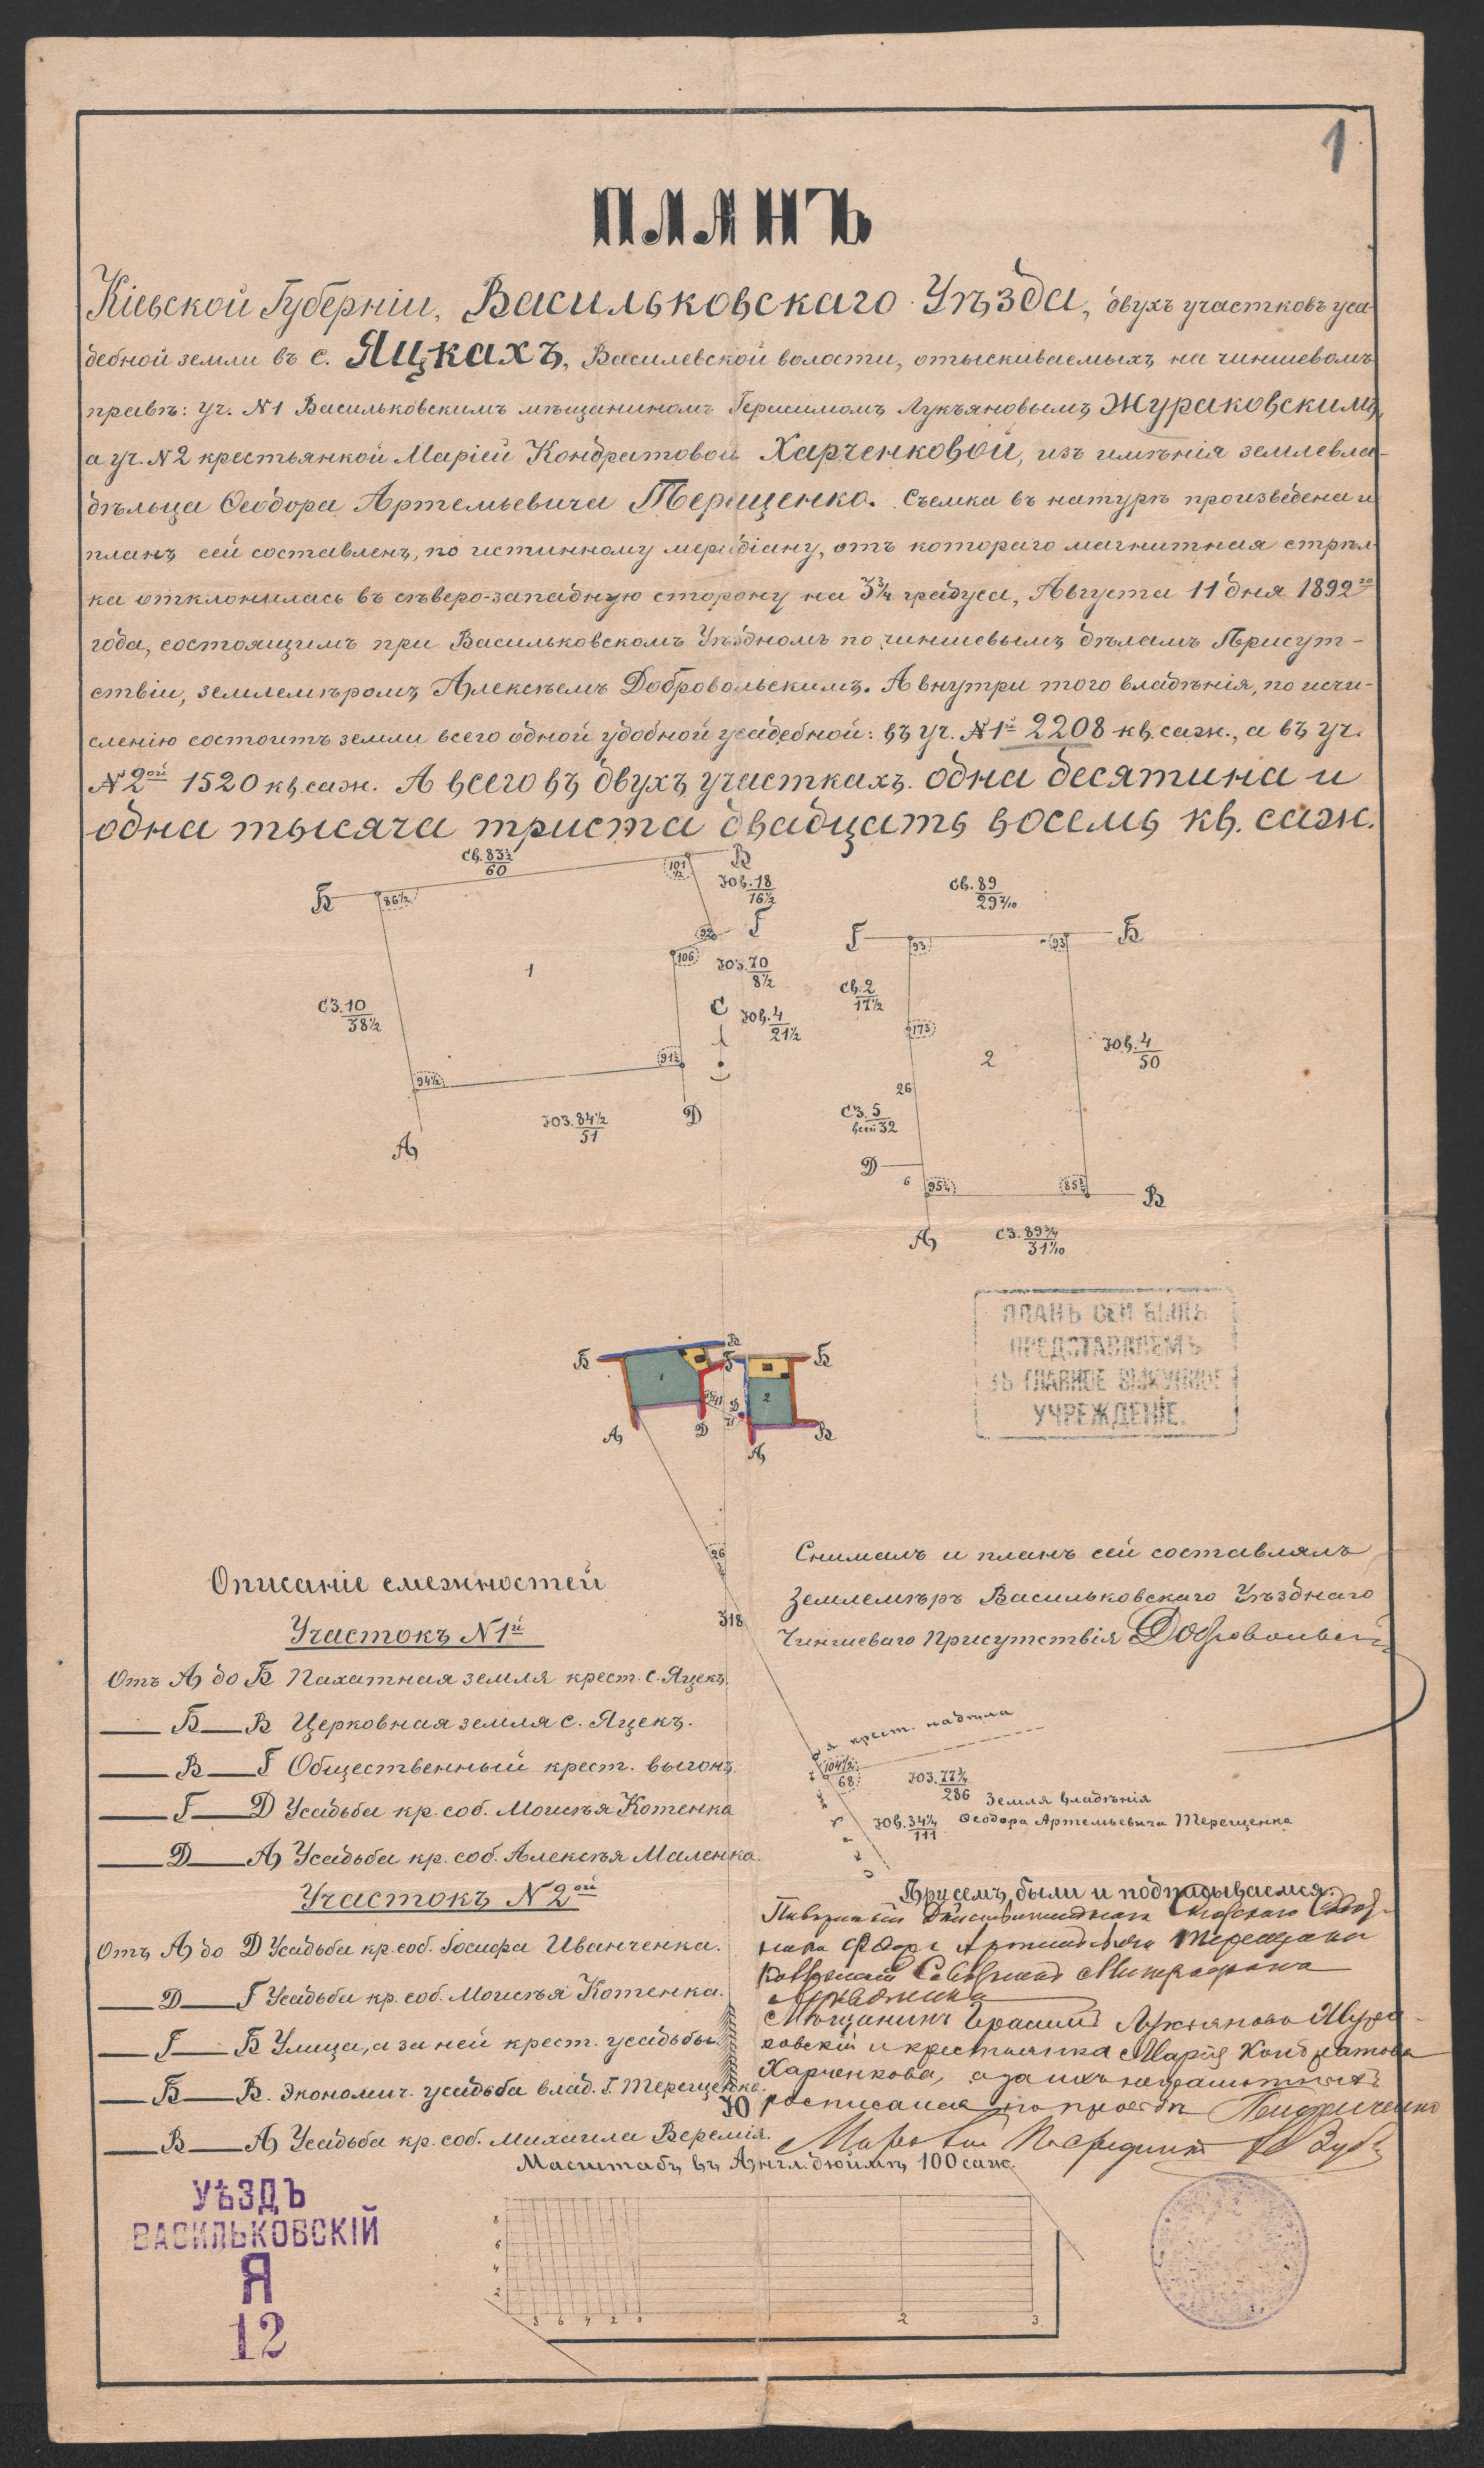 1
ПЛАНЪ
Кіевской Губерніи, Васильковскаго Уѣзда, двухъ участковъ уса-
дебной земли въ с. Яцкахъ, Василевской волости, отыскиваемыхъ на чиншевомъ
правѣ: уч. №1 Васильковскимъ мѣщаниномъ Герасимомъ Лукьяновымъ Жураковскимъ,
а уч. №2 крестьянкой Маріей Кондратовой Харченковой, изъ имѣнія землевла-
дѣльца Ѳеодора Артемьевича Терещенко. Съемка въ натурѣ произведена и
планъ сей составленъ, по истинному меридіану, отъ котораго магнитная стрѣл-
ка отклонилась въ сѣверо-западную сторону на 3¾ градуса, Августа 11 дня 1892го
года, состоящимъ при Васильковскомъ Уѣздномъ по чиншевымъ дѣламъ Присут-
ствіи, землемѣромъ Алексѣемъ Добровольскимъ. А внутри того владѣнія, по исчи-
сленію состоитъ земли всего одной удобной усадебной: въ уч. №1й 2208 кв. саж., а въ уч.
№2ой 1520 кв. саж. А всего въ двухъ участкахъ одна десятина и
одна тысяча триста двадцать восемь кв. саж.
Св. 83½
60
Б
86½
101
½
В
Юв. 18
16½
92
Г
106
Юз. 70
8½
1
СЗ. 10
38½
С
Юв. 4
21½
91½
94½
Юз. 84½
51
Д
А
Св. 89
29 2/10
Г
93
93
Б
Св. 2
17½
173
2
Юв. 4
50
26
СЗ. 5
всей 32
Д
6
95¼
85¾
В
А
СЗ. 89¾
31 1/10
ПЛАНЪ СЕЙ БЫЛЪ
ПРЕДСТАВЛЯЕМЪ
ВЪ ГЛАВНОЕ ВЫКУПНОЕ
УЧРЕЖДЕНІЕ.
Б
В
Г
Б
1
2
Д
А
Д
В
А
26
318
Снималъ и планъ сей составлялъ
Землемѣръ Васильковскаго Уѣзднаго
Чиншеваго Присутствія Добровольскій
Описаніе смежностей
Участокъ №1й
Отъ А до Б Пахатная земля крест. с. Яцекъ.
Б В Церковная земля с. Яцекъ.
В Г Общественный крест. выгонъ.
Г Д Усадьба кр. соб. Моисѣя Котенка
Д А Усадьба кр. соб. Алексѣя Маленка.
Участокъ №2ой
Отъ А до Д Усадьба кр. соб. Іосифа Иванченка.
Д Г Усадьба кр. соб. Моисѣя Котенка.
Г Б Улица, а за ней крест. усадьбы.
Б В. Экономич. усадьба влад. Г. Терещенко.
В А Усадьба кр. соб. Михаила Веремія.
крест. надѣла
104½
68
Юз. 77¾
286
Земля владѣнія
Юв. 34¼
111
Ѳеодора Артемьевича Терещенка
При семъ были и подписываемся:
Повѣренный Дѣйствительнаго Статскаго Совѣт-
ника Федора Артемьевича Терещенка
Мѣщанинъ Герасимъ Лукьяновъ Жура-
ковскій и крестьянка Марія Кондратова
Харченкова, а за ихъ неграмотныхъ
росписался по просьбѣ
Мировой Посредникъ
Ю
Масштабъ въ Англ. дюймѣ 100 саж.
8
6
4
2
8 6 4 2 0 1 2 3
УѢЗДЪ
ВАСИЛЬКОВСКІЙ
Я
12